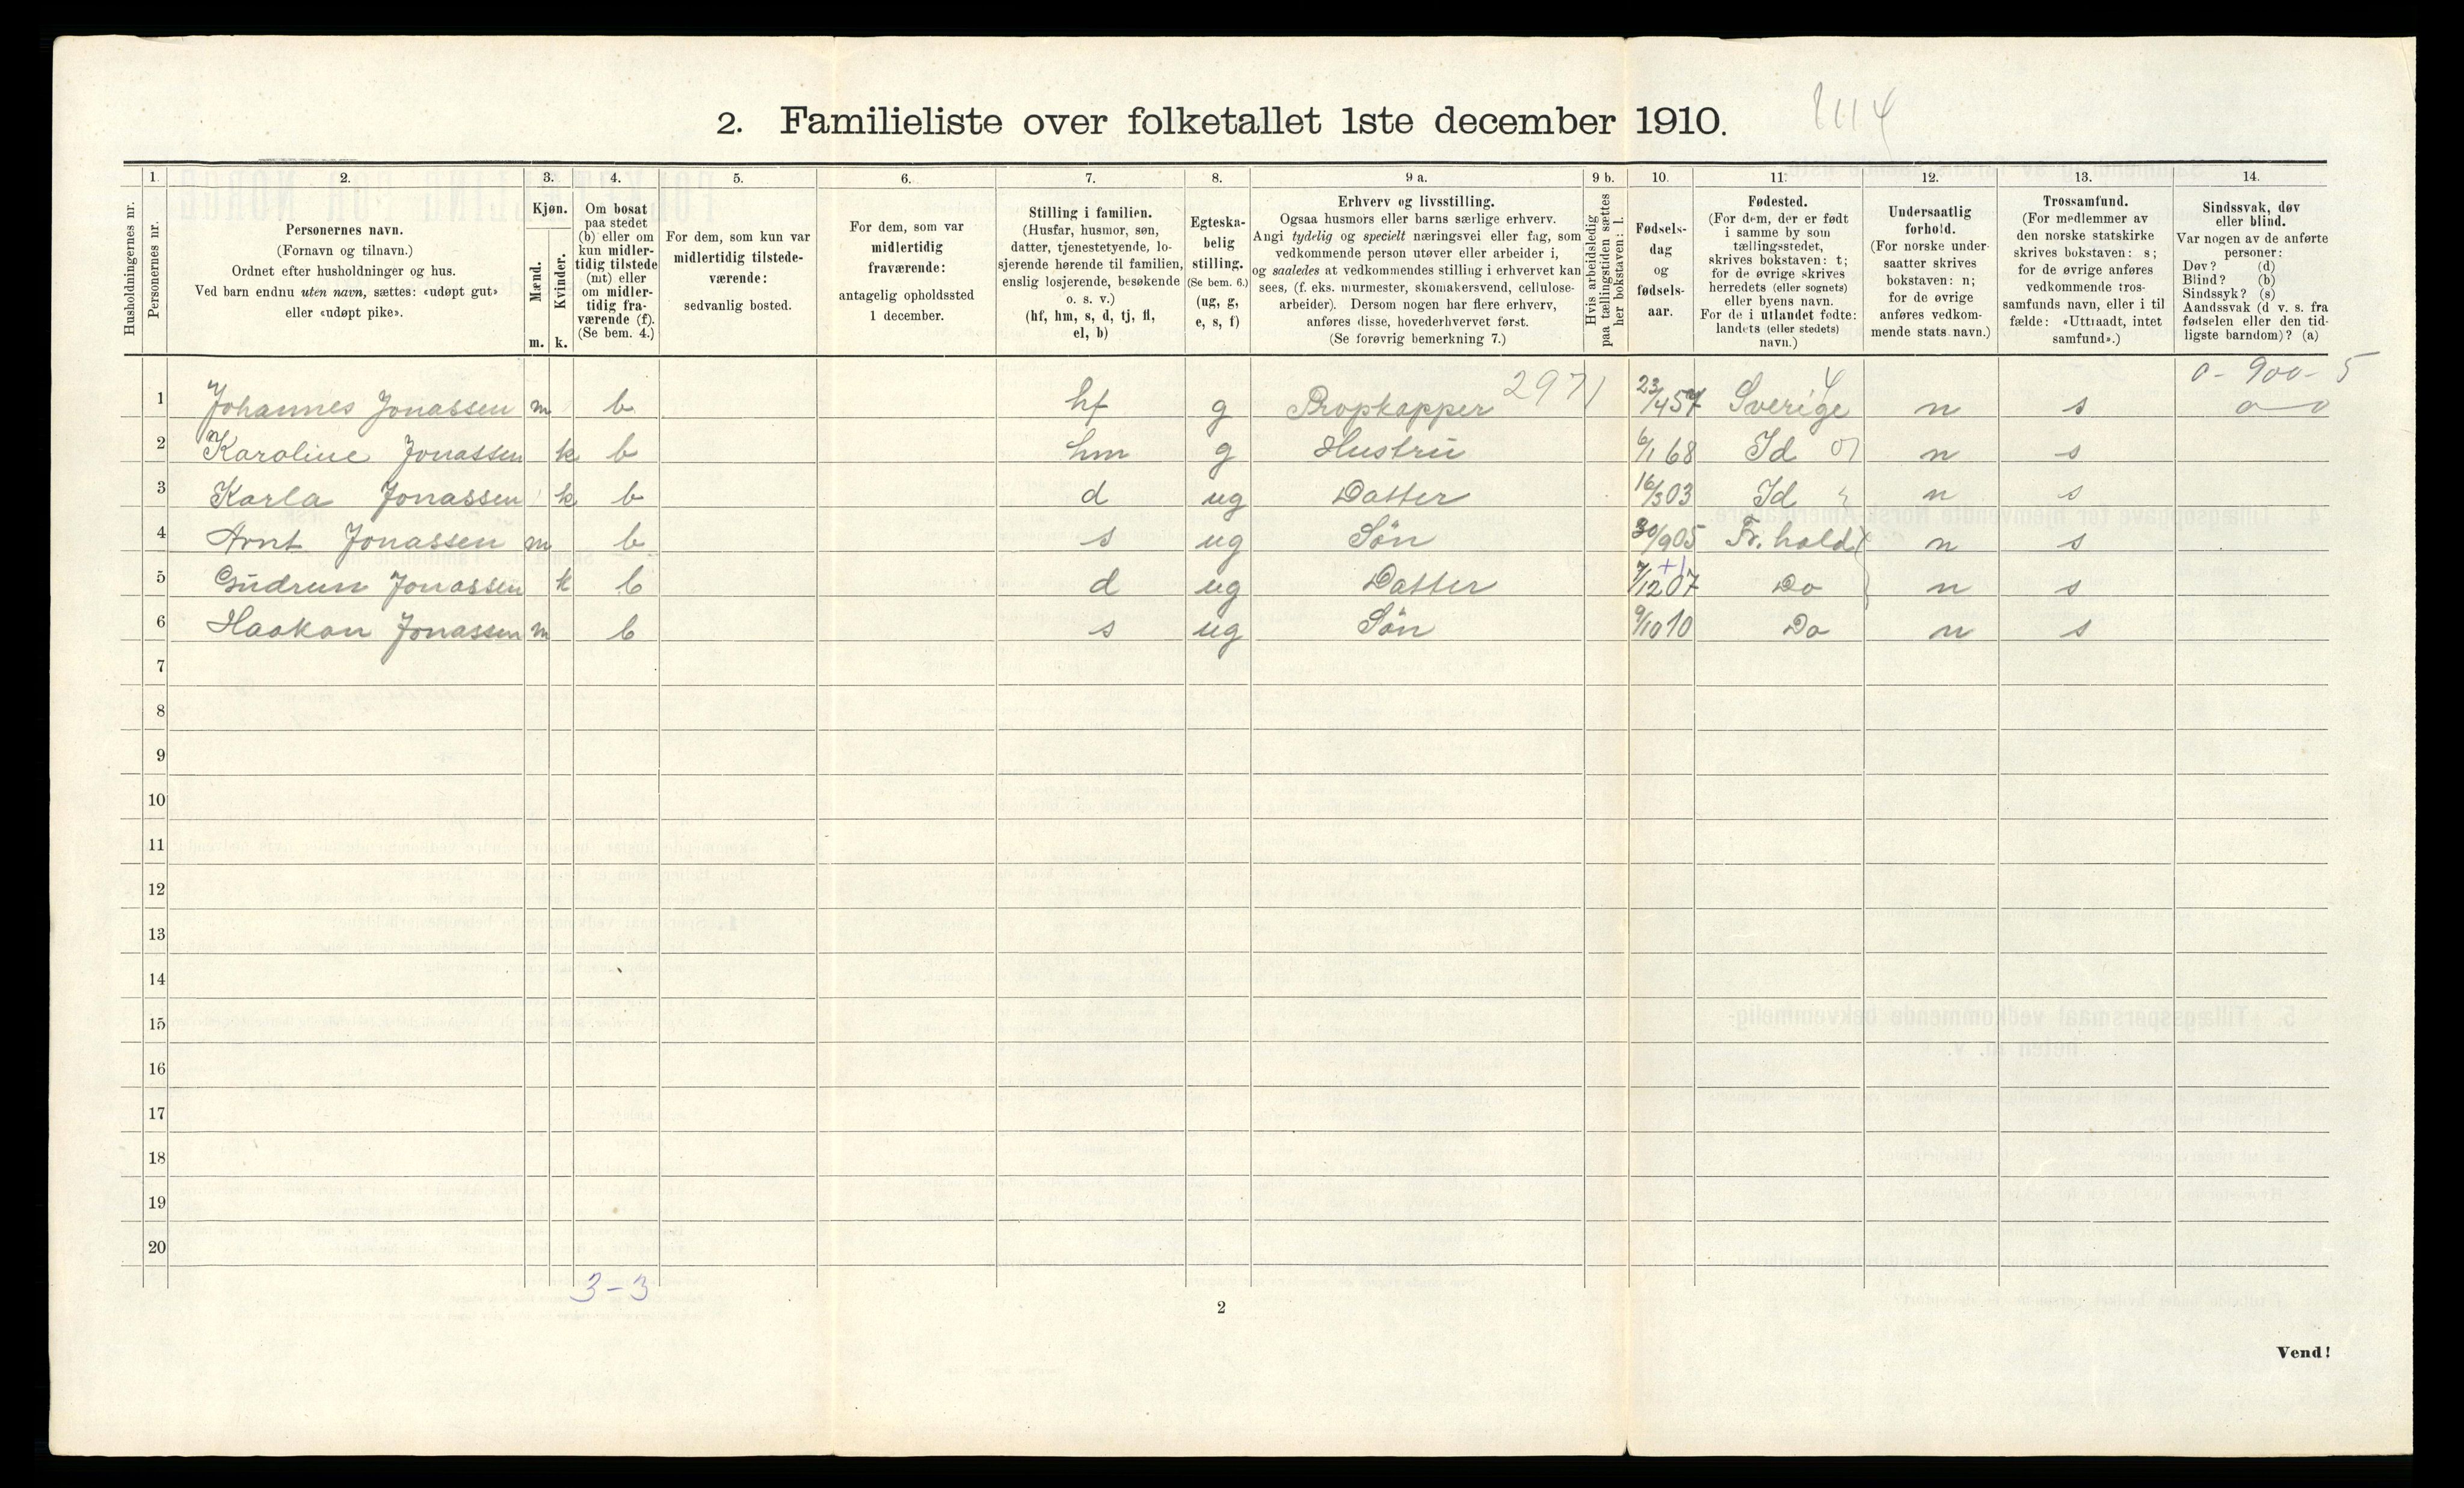 2. Familieliste over folketallet 1ste december 1910.
1114
Husholdningernes nr.
1. Personernes nr.
2. Personernes navn. (Fornavn og tilnavn.) Ordnet efter husholdninger og hus. Ved barn endnu uten navn, sættes: «udøpt gut» eller «udøpt pike».
3. Kjøn. Mænd. m. Kvinder. k.
4. Om bosat paa stedet (b) eller om kun midlertidig tilstede (mt) eller om midlertidig fraværende (f). (Se bem. 4.)
5. For dem, som kun var midlertidig tilstedeværende: sedvanlig bosted.
6. For dem, som var midlertidig fraværende: antagelig opholdssted 1 december.
7. Stilling i familien. (Husfar, husmor, søn, datter, tjenestetyende, losjerende hørende til familien, enslig losjerende, besøkende o. s. v.) (hf, hm, s, d, tj, fl, el, b)
8. Egteskabelig stilling. (Se bem. 6.) (ug, g, e, s, f)
9 a. Erhverv og livsstilling. Ogsaa husmors eller barns særlige erhverv. Angi tydelig og specielt næringsvei eller fag, som vedkommende person utøver eller arbeider i, og saaledes at vedkommendes stilling i erhvervet kan sees, (f. eks. murmester, skomakersvend, cellulosearbeider). Dersom nogen har flere erhverv, anføres disse, hovederhvervet først. (Se forøvrig bemerkning 7.)
9 b. Hvis arbeidsledig paa tællingstiden sættes her bokstaven: l.
10. Fødselsdag og fødselsaar.
11. Fødested. (For dem, der er født i samme by som tællingsstedet, skrives bokstaven: t; for de øvrige skrives herredets (eller sognets) eller byens navn. For de i utlandet fødte: landets (eller stedets) navn.)
12. Undersaatlig forhold. (For norske undersaatter skrives bokstaven: n; for de øvrige anføres vedkommende stats navn.)
13. Trossamfund. (For medlemmer av den norske statskirke skrives bokstaven: s; for de øvrige anføres vedkommende trossamfunds navn, eller i tilfælde: «Uttraadt, intet samfund».)
14. Sindssvak, døv eller blind. Var nogen av de anførte personer: Døv? (d) Blind? (b) Sindssyk? (s) Aandssvak (d v. s. fra fødselen eller den tidligste barndom)? (a)
0 - 900 - 5
1 Johannes Jonassen m b hf g Propkapper 2971 23/4 57 Sverige 4 n s 0 0
2 Karoline Jonassen k b hm g Hustru 6/1 68 Id 01 n s
3 Karla Jonassen k b d ug Datter 16/3 03 Id n s
4 Arnt Jonassen m b s ug Søn 30/9 05 Fr.hald n s
5 Gudrun Jonassen k b d ug Datter 7/12 07 +1 Do n s
6 Haakon Jonassen m b s ug Søn 9/10 10 Do n s
7
8
9
10
11
12
13
14
15
16
17
18
19
20
3-3
2
Vend!